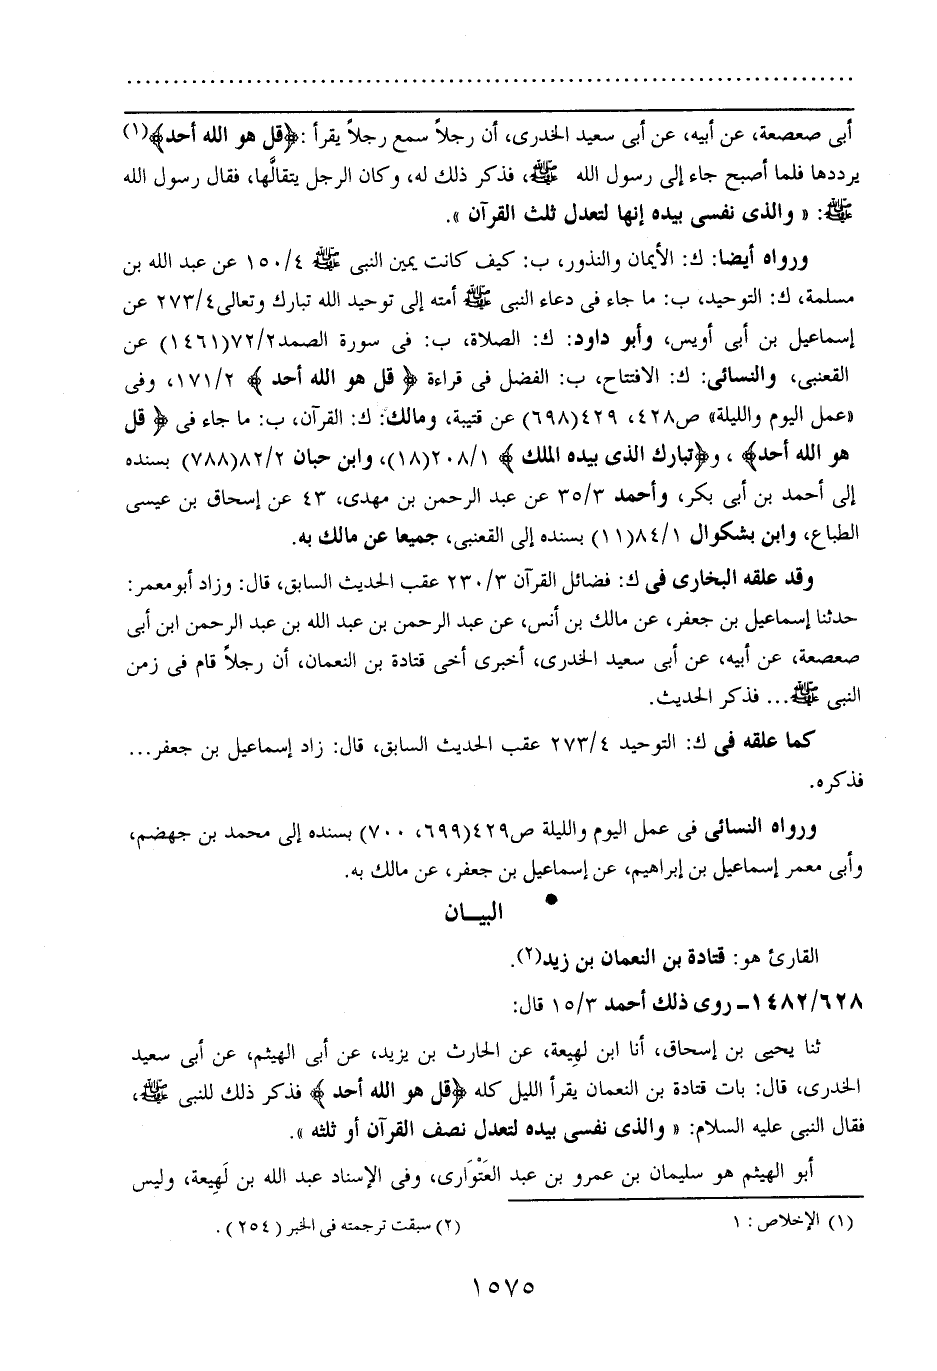 أبى صعصعة، عن أبيه، عن أبى سعيد الخدرى، أن رجلاً سمع رجلاً يقرأ :﴿قل هو الله أحد﴾(١)
يرددها فلما أصبح جاء إلى رسول الله ﷺ، فذكر ذلك له، وكان الرجل يتقالَّها، فقال رسول الله
ﷺ: « والذى نفسى بيده إنها لتعدل ثلث القرآن ».
ورواه أيضا: ك: الأيمان والنذور، ب: كيف كانت يمين النبى ﷺ ١٥٠/٤ عن عبد الله بن
مسلمة، ك: التوحيد، ب: ما جاء فى دعاء النبى ﷺ أمته إلى توحيد الله تبارك وتعالى٢٧٣/٤ عن
إسماعيل بن أبى أويس، وأبو داود: ك: الصلاة، ب: فى سورة الصمد٧٢/٢(١٤٦١) عن
القعنبى، والنسائى: ك: الافتتاح، ب: الفضل فى قراءة ﴿ قل هو الله أحد ﴾ ١٧١/٢، وفى
«عمل اليوم والليلة» ص٤٢٨، ٤٢٩(٦٩٨) عن قتيبة، ومالك: ك: القرآن، ب: ما جاء فى ﴿ قل
هو الله أحد﴾ ، و﴿تبارك الذى بيده الملك ﴾ ٢٠٨/١(١٨)، وابن حبان ٨٢/٢(٧٨٨) بسنده
إلى أحمد بن أبى بكر، وأحمد ٣٥/٣ عن عبد الرحمن بن مهدى، ٤٣ عن إسحاق بن عيسى
الطباع، وابن بشكوال ٨٤/١(١١) بسنده إلى القعنبى، جميعا عن مالك به.
وقد علقه البخارى فى ك: فضائل القرآن ٢٣٠/٣ عقب الحديث السابق، قال: وزاد أبو معمر:
حدثنا إسماعيل بن جعفر، عن مالك بن أنس، عن عبد الرحمن بن عبد الله بن عبد الرحمن ابن أبى
صعصعة، عن أبيه، عن أبى سعيد الخدرى، أخبرى أخى قتادة بن النعمان، أن رجلاً قام فى زمن
النبى ﷺ... فذكر الحديث.
كما علقه فى ك: التوحيد ٢٧٣/٤ عقب الحديث السابق، قال: زاد إسماعيل بن جعفر...
فذكره.
ورواه النسائى فى عمل اليوم والليلة ص٤٢٩(٦٩٩، ٧٠٠) بسنده إلى محمد بن جهضم،
وأبى معمر إسماعيل بن إبراهيم، عن إسماعيل بن جعفر، عن مالك به.
• البيـــان
القارئ هو: قتادة بن النعمان بن زيد(٢).
١٤٨٢/٦٢٨ــ روى ذلك أحمد ١٥/٣ قال:
ثنا يحيى بن إسحاق، أنا ابن لهيعة، عن الحارث بن يزيد، عن أبى الهيثم، عن أبى سعيد
الخدرى، قال: بات قتادة بن النعمان يقرأ الليل كله ﴿قل هو الله أحد ﴾ فذكر ذلك للنبى ﷺ،
فقال النبى عليه السلام: « والذى نفسى بيده لتعدل نصف القرآن أو ثلثه ».
أبو الهيثم هو سليمان بن عمرو بن عبد العَتْوَارى، وفى الإسناد عبد الله بن لَهِيعة، وليس
(١) الإخلاص : ١
(٢) سبقت ترجمته فى الخبر ( ٢٥٤ ) .
١٥٧٥